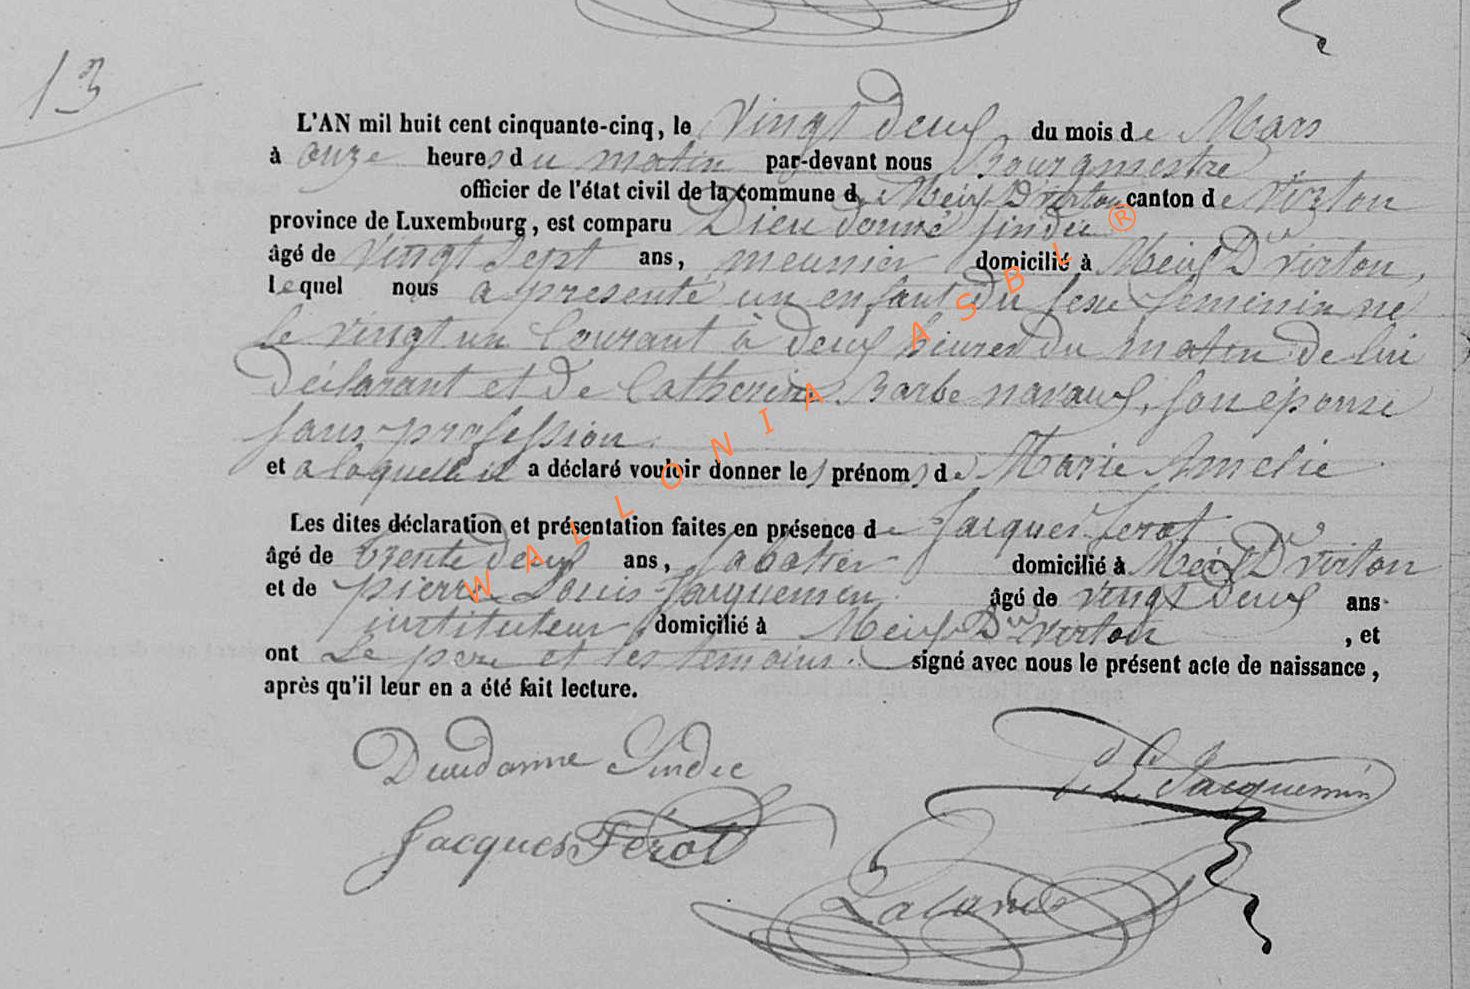 13
L'AN mil huit cent cinquante-cinq, le Vingt deux du mois de Mars
à onze heures du matin par-devant nous Bourgmestre
officier de l'état civil de la commune de Meix Dt virton canton de Virton
province de Luxembourg, est comparu Dieu donné sindic
âgé de Vingt sept ans, meunier domicilié à Meix Dt virton,
lequel nous a presenté un enfant du sexe feminin né
le vingt un Courant à deux heures du matin de lui
déclarant et de Catherine Barbe navaux, son épouse
sans profession.
et a laquelle il a déclaré vouloir donner les prénoms de Marie Amelie
Les dites déclaration et présentation faites en présence de Jacques ferot
âgé de trente deux ans, sabotier domicilié à Meix Dt virton
et de pierre Louis Jacquemin âgé de vingt deux ans
instituteur domicilié à Meix Dt virton , et
ont Le pere et les temoins. signé avec nous le présent acte de naissance,
après qu'il leur en a été fait lecture.
Dieudonne Sindic
P. L. Jacquemin
Jacques Ferot
WALLONIA ASBL ®